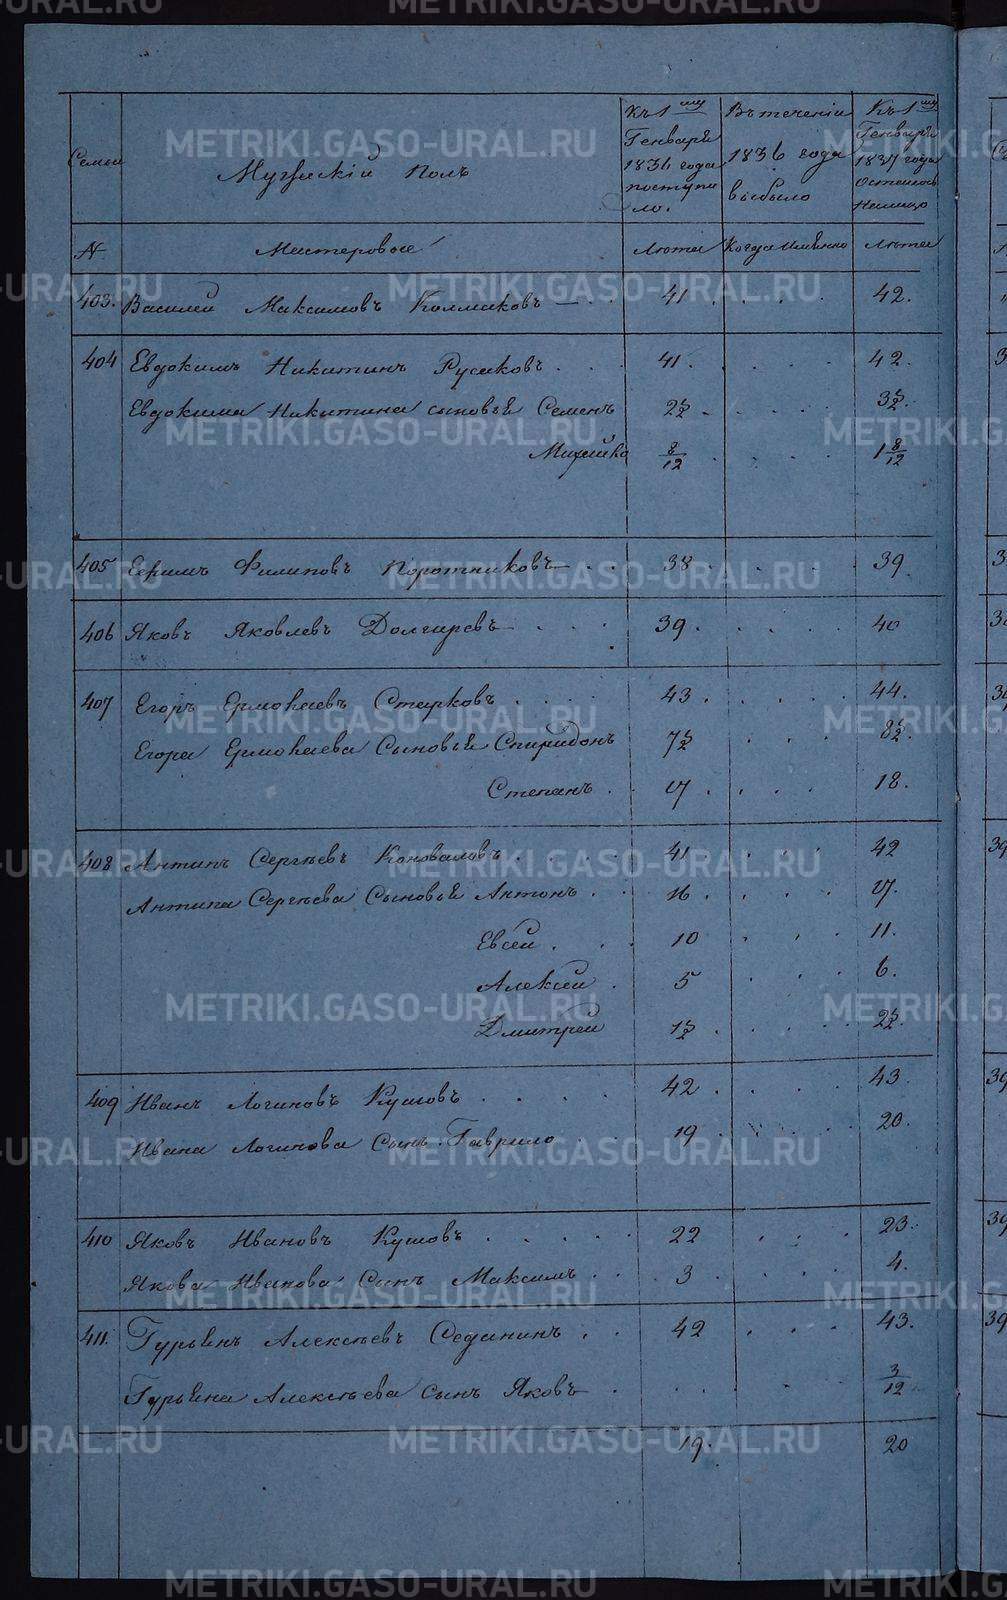 METRIKI.GASO-URAL.RU
Семьи
Мужескій Полъ
Къ 1му Генваря 1836 года поступило.
Въ теченіи 1836 года выбыло
Къ 1му Генваря 1837 года Осталось На лицо
№ Мастеровые Лѣта Когда имянно Лѣта
403. Василей Максимовъ Колмаковъ 41 42.
404 Евдокимъ Никитинъ Русаковъ 41. 42.
Евдокима Никитина сыновья Семенъ
Михайло 8/12 1 8/12
405 Ефимъ Филиповъ Поротниковъ 38 39
406 Яковъ Яковлевъ Долгиревъ 39. 40
407 Егоръ Ермолаевъ Старковъ 43 44.
Егора Ермолаева Сыновья Спиридонъ
Степанъ 17 18.
408 Антипъ Сергѣевъ Коноваловъ 41 42
Антипа Сергѣева Сыновья Антонъ 16 17.
Евсей 10 11.
Алексѣй 5 6.
Дмитрей
409 Иванъ Логиновъ 42 43
Ивана Логинова Сынъ Гаврило 19 20.
410 Яковъ Ивановъ 22 23.
Якова Иванова Сынъ Максимъ 3 4.
411. Гурьянъ Алексѣевъ Седанинъ 42 43.
Гурьяна Алексѣева сынъ Яковъ 3/12
19. 20